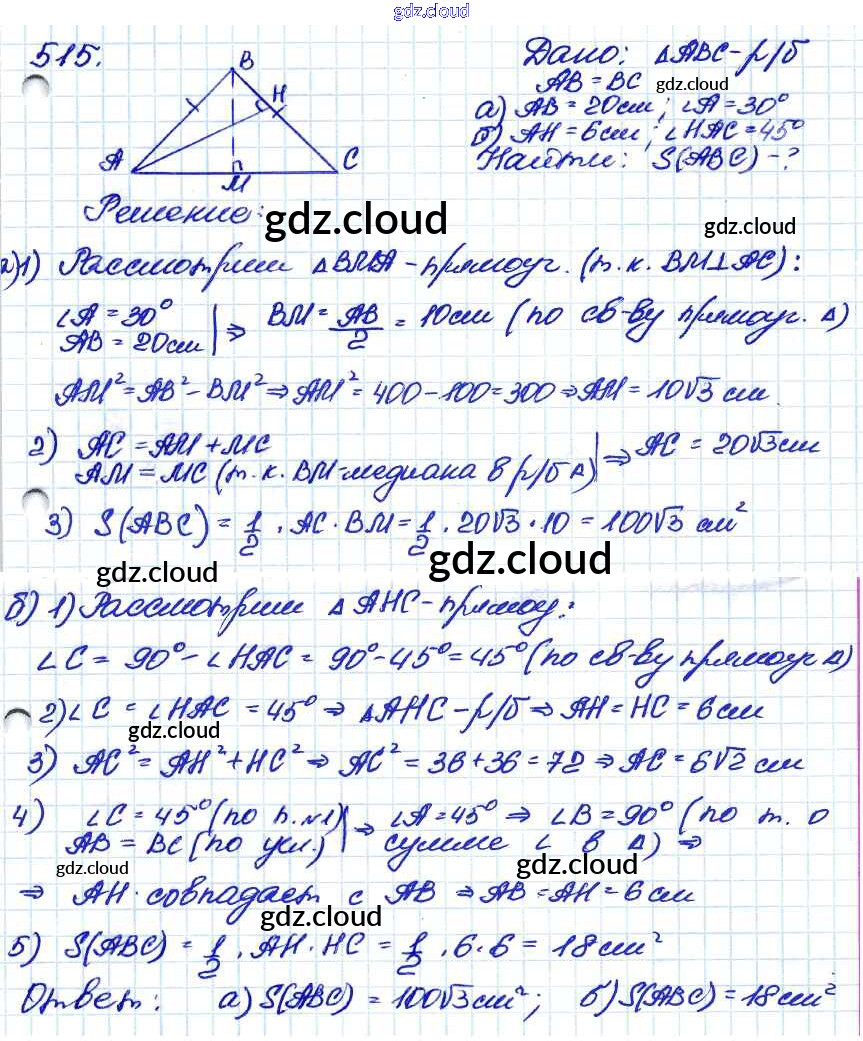 gdz.cloud
515.
B
H
A
M
C
Дано: △ABC - р/б
AB = BC
gdz.cloud
а) AB = 20см; ∠A = 30°
б) AH = 6см; ∠HAC = 45°
Найти: S(ABC) - ?
Решение:
gdz.cloud
gdz.cloud
а) 1) Рассмотрим △BMA - прямоуг. (т. к. BM⊥AC):
∠A = 30°
AB = 20см | ⇒ BM = AB/2 = 10см (по св-ву прямоуг. △)
AM² = AB² - BM² ⇒ AM² = 400 - 100 = 300 ⇒ AM = 10√3 см.
2) AC = AM + MC
AM = MC (т. к. BM = медиана в р/б △) | ⇒ AC = 20√3см
3) S(ABC) = 1/2 · AC · BM = 1/2 · 20√3 · 10 = 100√3 см²
gdz.cloud
gdz.cloud
б) 1) Рассмотрим △AHC - прямоу.:
∠C = 90° - ∠HAC = 90° - 45° = 45° (по св-ву прямоуг △)
2) ∠C = ∠HAC = 45° ⇒ △AHC - р/б ⇒ AH = HC = 6см
gdz.cloud
3) AC² = AH² + HC² ⇒ AC² = 36 + 36 = 72 ⇒ AC = 6√2 см
4) ∠C = 45° (по п. №1)
AB = BC (по усл.) | ⇒ ∠A = 45° ⇒ ∠B = 90° (по т. о
сумме ∠ в △) ⇒
gdz.cloud
gdz.cloud
⇒ AH совпадает с AB ⇒ AB = AH = 6 см
gdz.cloud
5) S(ABC) = 1/2 · AH · HC = 1/2 · 6 · 6 = 18см²
Ответ: а) S(ABC) = 100√3см²; б) S(ABC) = 18см²
gdz.cloud